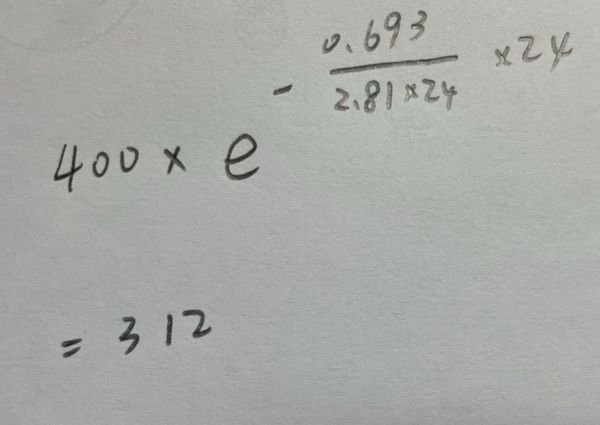 400 × e^(- 0.693 / 2.81×24 ×24)
= 312